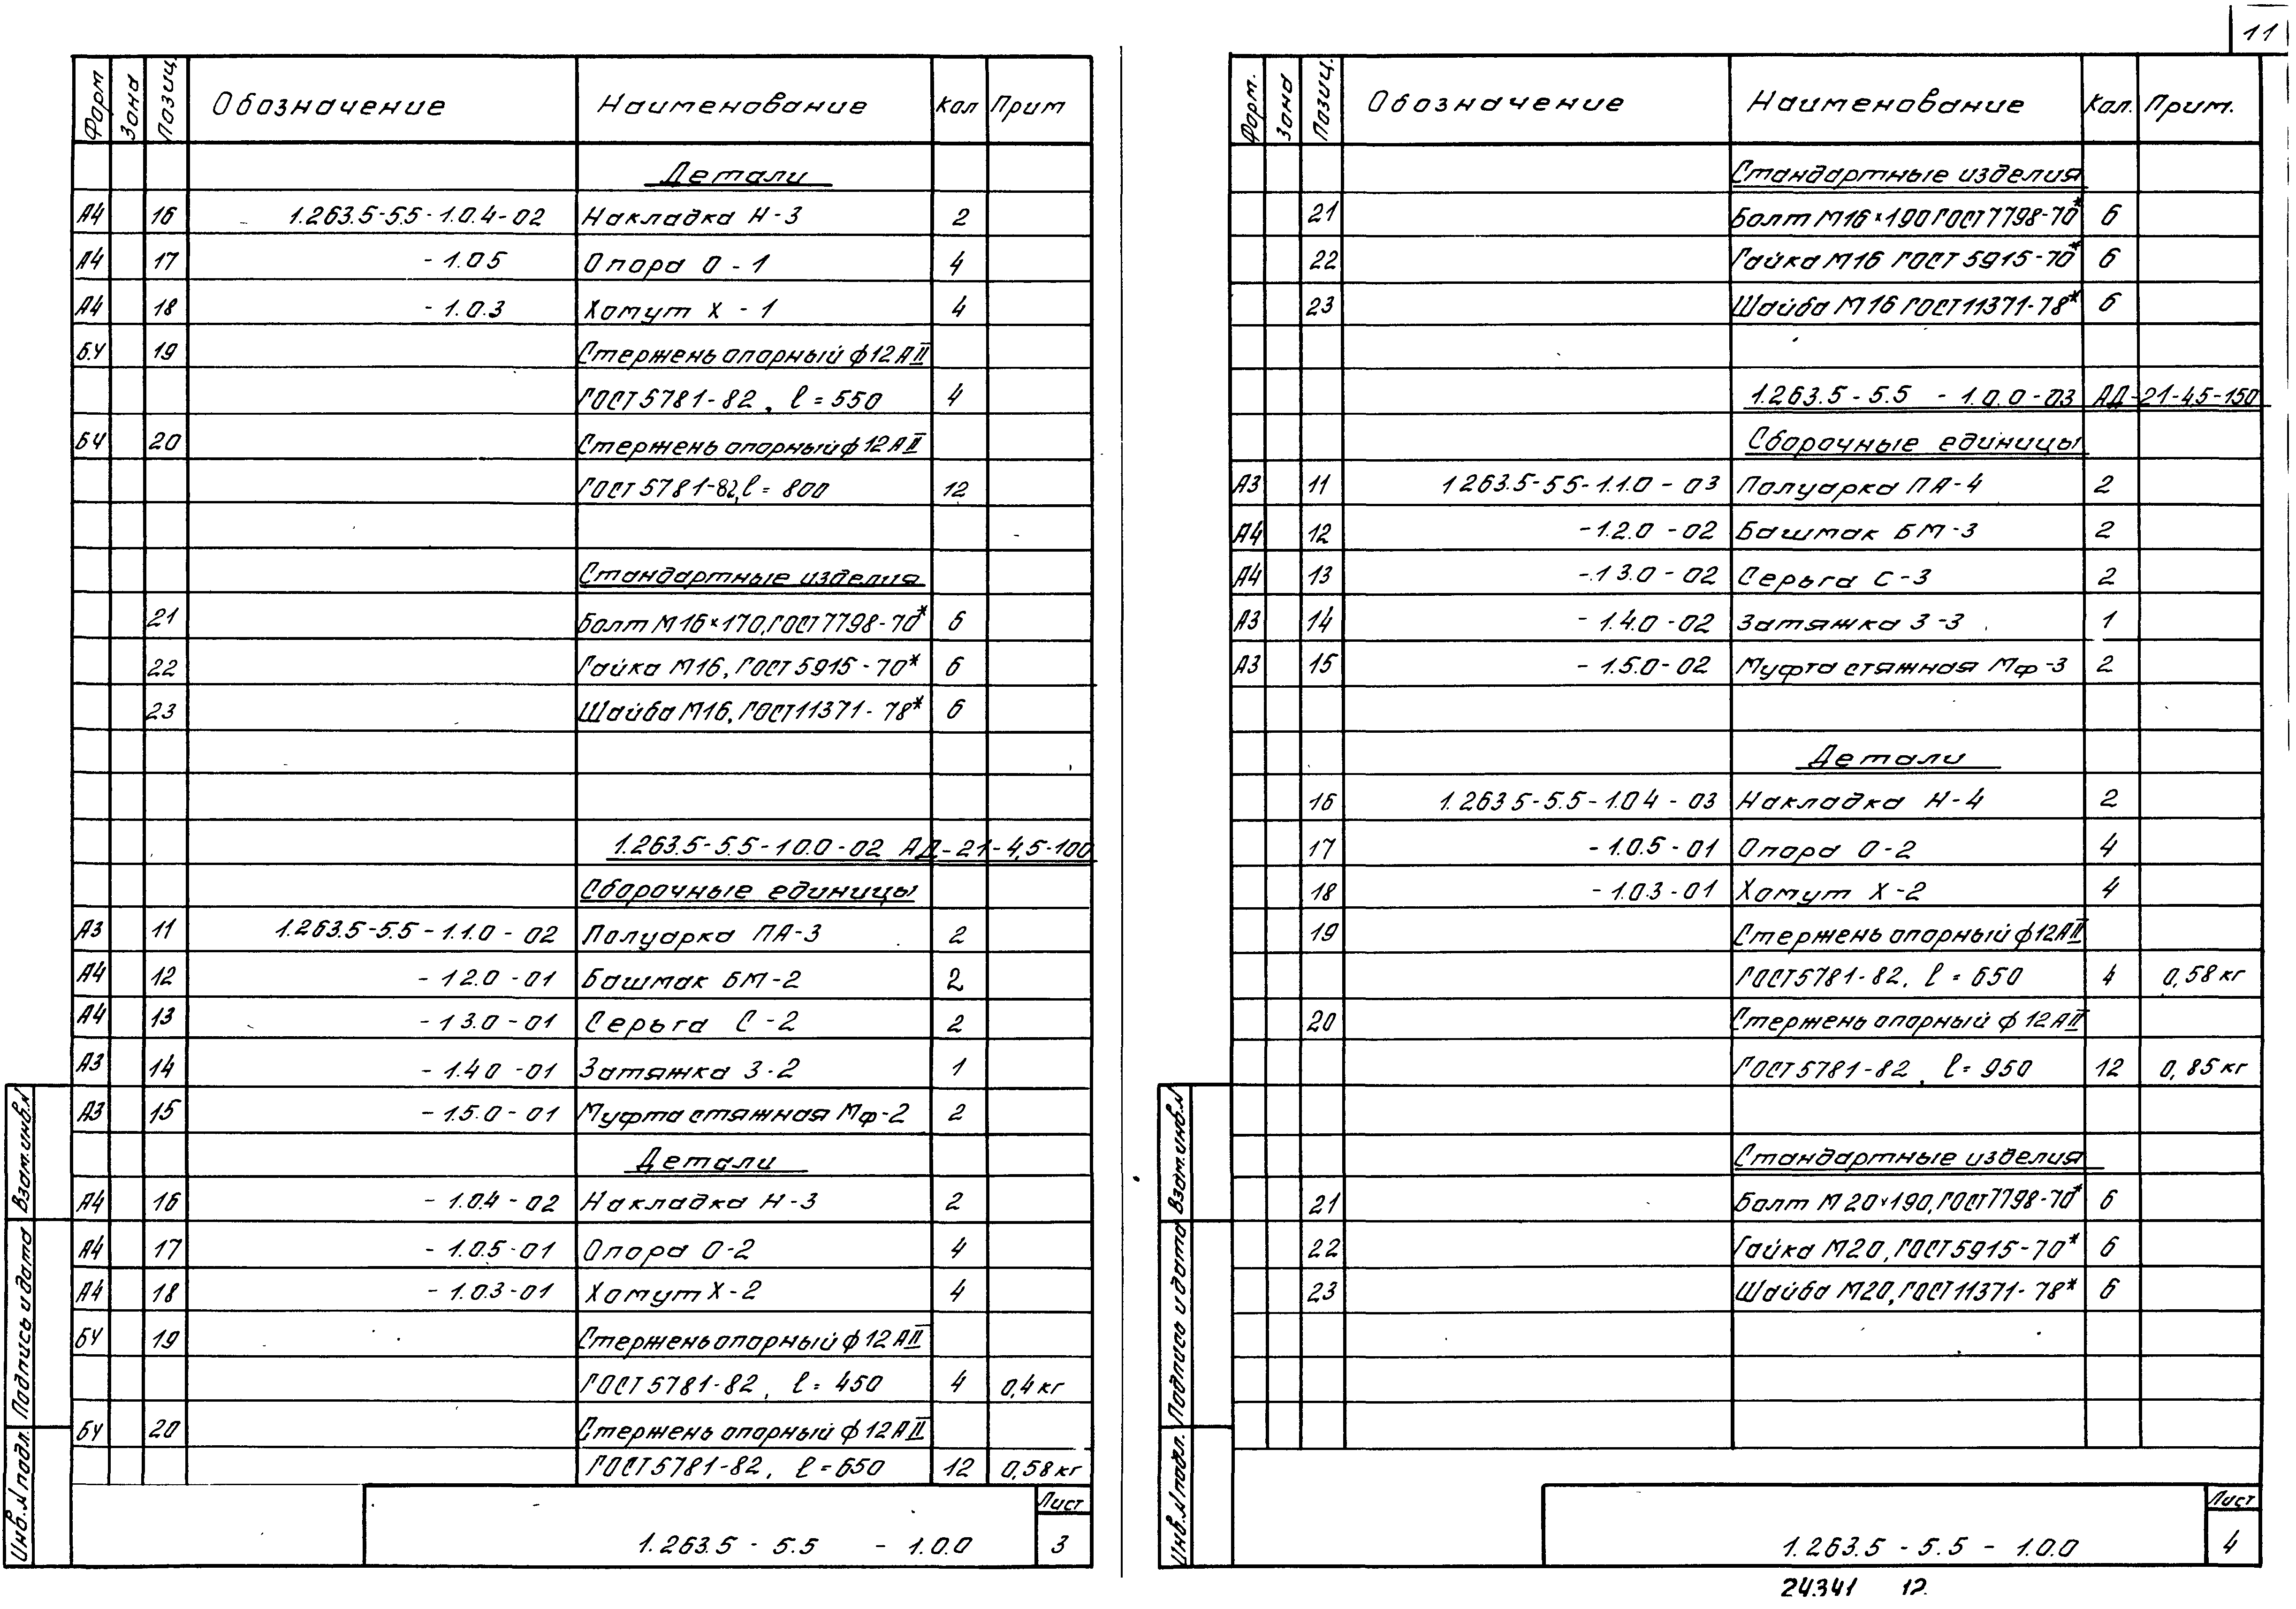 11
Форм Зона Позиц. Обозначение Наименование Кол Прим
Детали
А4 16 1.263.5-5.5-1.0.4-02 Накладка Н-3 2
А4 17 -1.05 Опора О-1 4
А4 18 -1.0.3 Хомут Х-1 4
Б.Ч 19 Стержень опорный ф12АII
ГОСТ5781-82, l=550 4
БЧ 20 Стержень опорный ф12АII
ГОСТ5781-82, l=800 12
Стандартные изделия
21 Болт М16×170, ГОСТ7798-70* 6
22 Гайка М16, ГОСТ5915-70* 6
23 Шайба М16, ГОСТ11371-78* 6
1.263.5-5.5-10.0-02 АД-21-4,5-100
Сборочные единицы
А3 11 1.263.5-5.5-1.1.0-02 Полуарка ПА-3 2
А4 12 -12.0-01 Башмак БМ-2 2
А4 13 -13.0-01 Серьга С-2 2
А3 14 -1.40-01 Затяжка З-2 1
А3 15 -1.5.0-01 Муфта стяжная Мф-2 2
Детали
А4 16 -1.0.4-02 Накладка Н-3 2
А4 17 -1.0.5-01 Опора О-2 4
А4 18 -1.0.3-01 Хомут Х-2 4
БЧ 19 Стержень опорный ф12АII
ГОСТ5781-82, l=450 4 0,4кг
БЧ 20 Стержень опорный ф12АII
ГОСТ5781-82, l=650 12 0,58кг
Взам.инв.№
Подпись и дата
Инв.№подл.
1.263.5-5.5 -1.0.0
Лист
3
Форм. Зона Позиц. Обозначение Наименование Кол. Прим.
Стандартные изделия
21 Болт М16×190 ГОСТ7798-70* 6
22 Гайка М16 ГОСТ5915-70* 6
23 Шайба М16 ГОСТ11371-78* 6
1.263.5-5.5 -1.0.0-03 АД-21-4,5-150
Сборочные единицы
А3 11 1263.5-55-1.1.0-03 Полуарка ПА-4 2
А4 12 -1.2.0-02 Башмак БМ-3 2
А4 13 -.13.0-02 Серьга С-3 2
А3 14 -1.4.0-02 Затяжка З-3 1
А3 15 -1.5.0-02 Муфта стяжная Мф-3 2
Детали
16 1.263.5-5.5-1.0.4-03 Накладка Н-4 2
17 -1.0.5-01 Опора О-2 4
18 -1.0.3-01 Хомут Х-2 4
19 Стержень опорный ф12АII
ГОСТ5781-82, l=650 4 0,58кг
20 Стержень опорный ф12АII
ГОСТ5781-82, l=950 12 0,85кг
Стандартные изделия
21 Болт М20×190, ГОСТ7798-70* 6
22 Гайка М20, ГОСТ5915-70* 6
23 Шайба М20, ГОСТ11371-78* 6
Взам.инв.№
Подпись и дата
Инв.№подл.
1.263.5-5.5-1.0.0
Лист
4
24341 12.